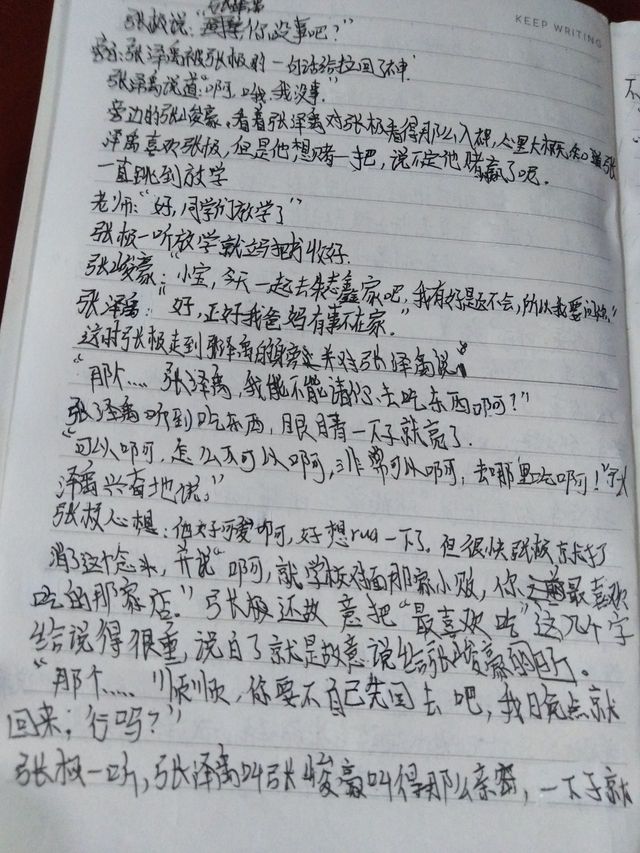 KEEP WRITING
张极说:"你没事吧?"
张泽禹被张极的一句话给拉回了神.
张泽禹说道:"啊,哦,我没事."
旁边的张峻豪,看着张泽禹对张极看得那么入想,心里大概知
泽禹喜欢张极,但是他想赌一把,说不定他赌赢了呢.
一直跳到放学
老师:"好,同学们放学了"
张极一听放学就立马把书收好.
张峻豪:"小宝,今天一起去朱志鑫家吧,我有好是题不会,所以我要问他."
张泽禹:"好,正好我爸妈有事不在家."
这时张极走到张泽禹的身旁对张泽禹说
"那个.... 张泽禹,我能不能请你去吃东西啊?"
张泽禹听到吃东西,眼睛一下子就亮了.
"可以啊,怎么不可以啊,非常可以啊,去哪里吃啊!"
泽禹兴奋地说,
张极心想:他好可爱啊,好想rua一下了.但很快张极就打
消了这个念头,并说"啊,就学校对面那家小败,你最喜欢
吃的那家店." 张极还故意把"最喜欢吃"这几个字
给说得很重,说白了就是故意说给张峻豪的听。
"那个..... 顺顺,你要不自己先回去吧,我晚点就
回来,行吗?"
张极一听,张泽禹叫张峻豪叫得那么亲密,一下子就